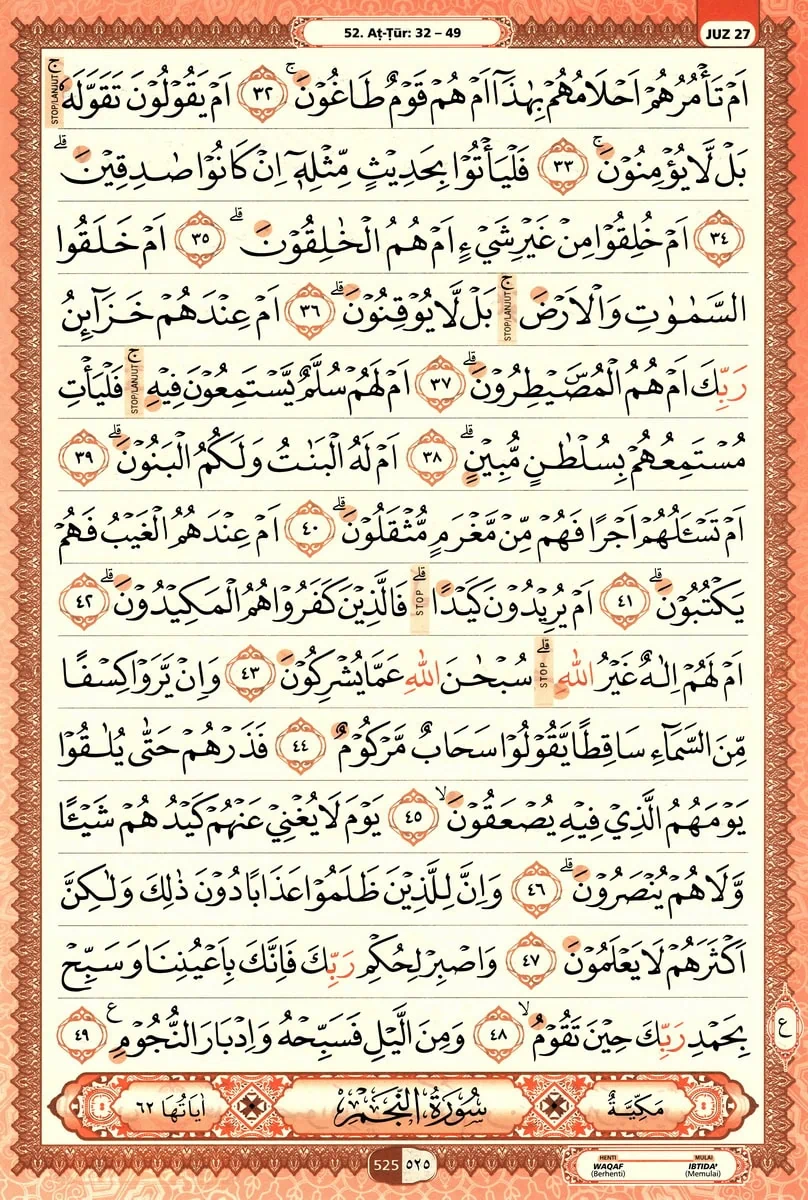 JUZ 27
52. Aṭ-Ṭūr: 32 – 49
اَمْ تَأْمُرُهُمْ اَحْلَامُهُمْ بِهٰذَآ اَمْ هُمْ قَوْمٌ طَاغُوْنَۚ ٣٢ اَمْ يَقُوْلُوْنَ تَقَوَّلَهٗۚ STOP/LANJUT
بَلْ لَّا يُؤْمِنُوْنَۚ ٣٣ فَلْيَأْتُوْا بِحَدِيْثٍ مِّثْلِهٖٓ اِنْ كَانُوْا صٰدِقِيْنَۗ
٣٤ اَمْ خُلِقُوْا مِنْ غَيْرِ شَيْءٍ اَمْ هُمُ الْخٰلِقُوْنَۗ ٣٥ اَمْ خَلَقُوا
السَّمٰوٰتِ وَالْاَرْضَۚ STOP/LANJUT بَلْ لَّا يُوْقِنُوْنَۗ ٣٦ اَمْ عِنْدَهُمْ خَزَاۤىِٕنُ
رَبِّكَ اَمْ هُمُ الْمُصَۣيْطِرُوْنَۗ ٣٧ اَمْ لَهُمْ سُلَّمٌ يَّسْتَمِعُوْنَ فِيْهِۚ STOP/LANJUT فَلْيَأْتِ
مُسْتَمِعُهُمْ بِسُلْطٰنٍ مُّبِيْنٍۗ ٣٨ اَمْ لَهُ الْبَنٰتُ وَلَكُمُ الْبَنُوْنَۗ ٣٩
اَمْ تَسْـَٔلُهُمْ اَجْرًا فَهُمْ مِّنْ مَّغْرَمٍ مُّثْقَلُوْنَۗ ٤٠ اَمْ عِنْدَهُمُ الْغَيْبُ فَهُمْ
يَكْتُبُوْنَۗ ٤١ اَمْ يُرِيْدُوْنَ كَيْدًاۗ STOP فَالَّذِيْنَ كَفَرُوْا هُمُ الْمَكِيْدُوْنَۗ ٤٢
اَمْ لَهُمْ اِلٰهٌ غَيْرُ اللّٰهِۗ STOP سُبْحٰنَ اللّٰهِ عَمَّا يُشْرِكُوْنَ ٤٣ وَاِنْ يَّرَوْا كِسْفًا
مِّنَ السَّمَاۤءِ سَاقِطًا يَّقُوْلُوْا سَحَابٌ مَّرْكُوْمٌ ٤٤ فَذَرْهُمْ حَتّٰى يُلٰقُوْا
يَوْمَهُمُ الَّذِيْ فِيْهِ يُصْعَقُوْنَۙ ٤٥ يَوْمَ لَا يُغْنِيْ عَنْهُمْ كَيْدُهُمْ شَيْـًٔا
وَّلَا هُمْ يُنْصَرُوْنَۗ ٤٦ وَاِنَّ لِلَّذِيْنَ ظَلَمُوْا عَذَابًا دُوْنَ ذٰلِكَ وَلٰكِنَّ
اَكْثَرَهُمْ لَا يَعْلَمُوْنَ ٤٧ وَاصْبِرْ لِحُكْمِ رَبِّكَ فَاِنَّكَ بِاَعْيُنِنَا وَسَبِّحْ
بِحَمْدِ رَبِّكَ حِيْنَ تَقُوْمُۙ ٤٨ وَمِنَ الَّيْلِ فَسَبِّحْهُ وَاِدْبَارَ النُّجُوْمِ ࣖ ٤٩
ع
مَكِيَّةٌ سُوْرَةُ النَّجْمِ اٰيَاتُهَا ٦٢
525 ٥٢٥
HENTI MULAI
WAQAF IBTIDA'
(Berhenti) (Memulai)